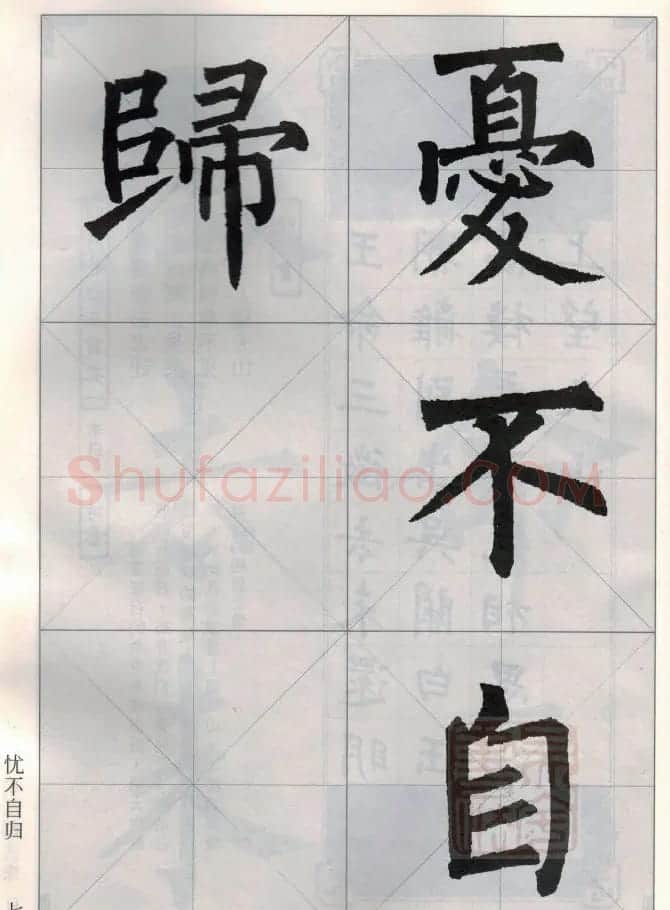 憂不自
歸
Shufaziliao.COM
忧不自归